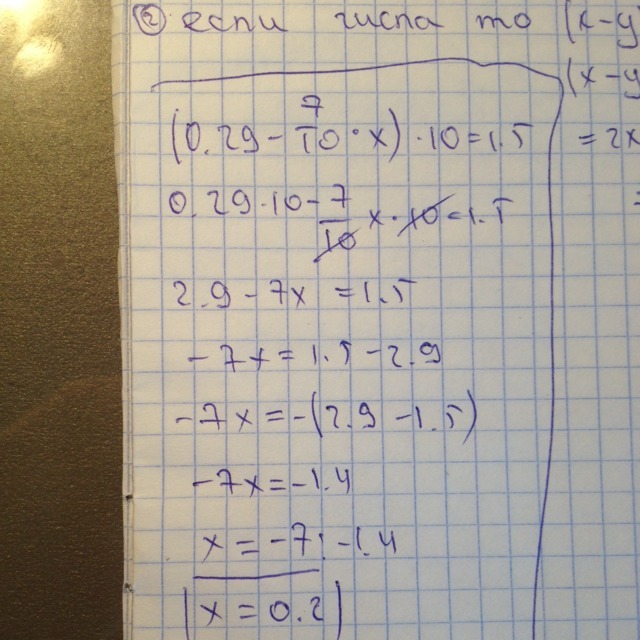 ② если числа то (x-y
(x-y
(0.29 - 7/10 · x) · 10 = 1.5
= 2x
0.29 · 10 - 7/10 x · 10 = 1.5
=
2.9 - 7x = 1.5
-7x = 1.5 - 2.9
-7x = -(2.9 - 1.5)
-7x = -1.4
x = -7 : -1.4
x = 0.2